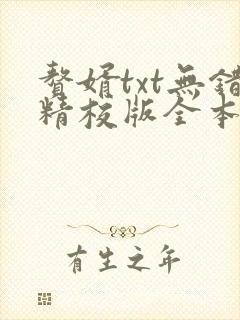 贅婿txt無錯
精校版全本
有生之年